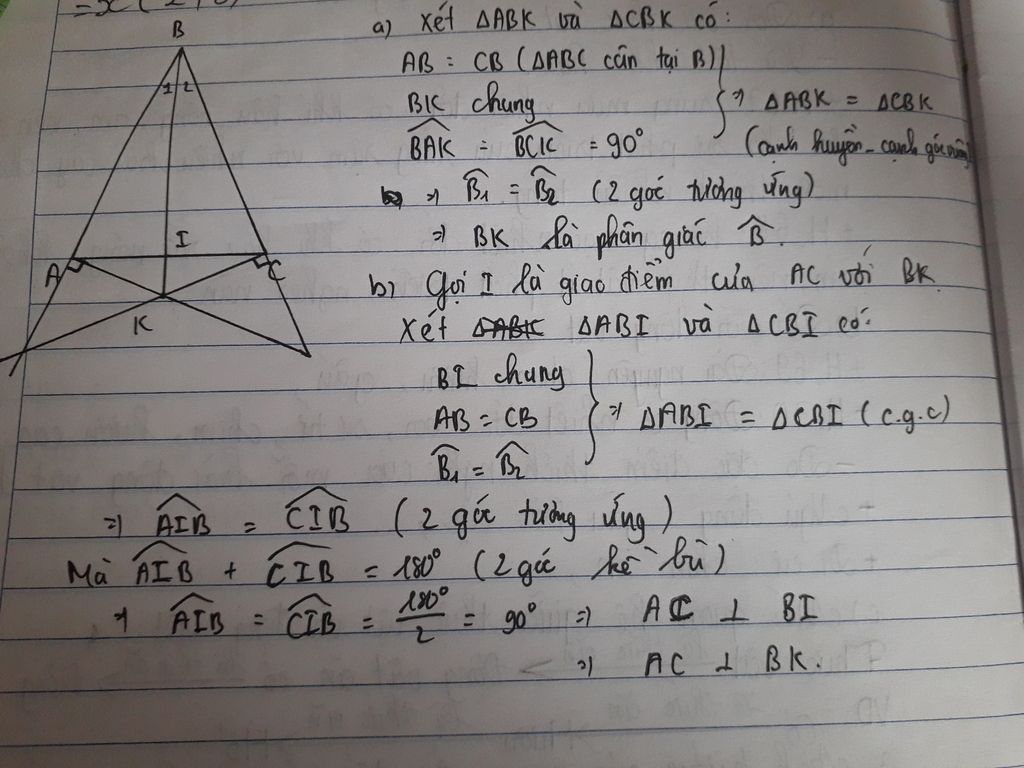 B
1 2
I
A
C
K
a) Xét ΔABK và ΔCBK có:
AB = CB (ΔABC cân tại B)
BK chung ⇒ ΔABK = ΔCBK
\widehat{BAK} = \widehat{BCK} = 90° (cạnh huyền - cạnh góc vuông)
⇒ \widehat{B}₁ = \widehat{B}₂ (2 góc tương ứng)
⇒ BK là phân giác \widehat{B}.
b) Gọi I là giao điểm của AC với BK
Xét ΔABI và ΔCBI có:
BI chung
AB = CB ⇒ ΔABI = ΔCBI (c.g.c)
\widehat{B}₁ = \widehat{B}₂
⇒ \widehat{AIB} = \widehat{CIB} (2 góc tương ứng)
Mà \widehat{AIB} + \widehat{CIB} = 180° (2 góc kề bù)
⇒ \widehat{AIB} = \widehat{CIB} = 180°/2 = 90° ⇒ AC ⊥ BI
⇒ AC ⊥ BK.